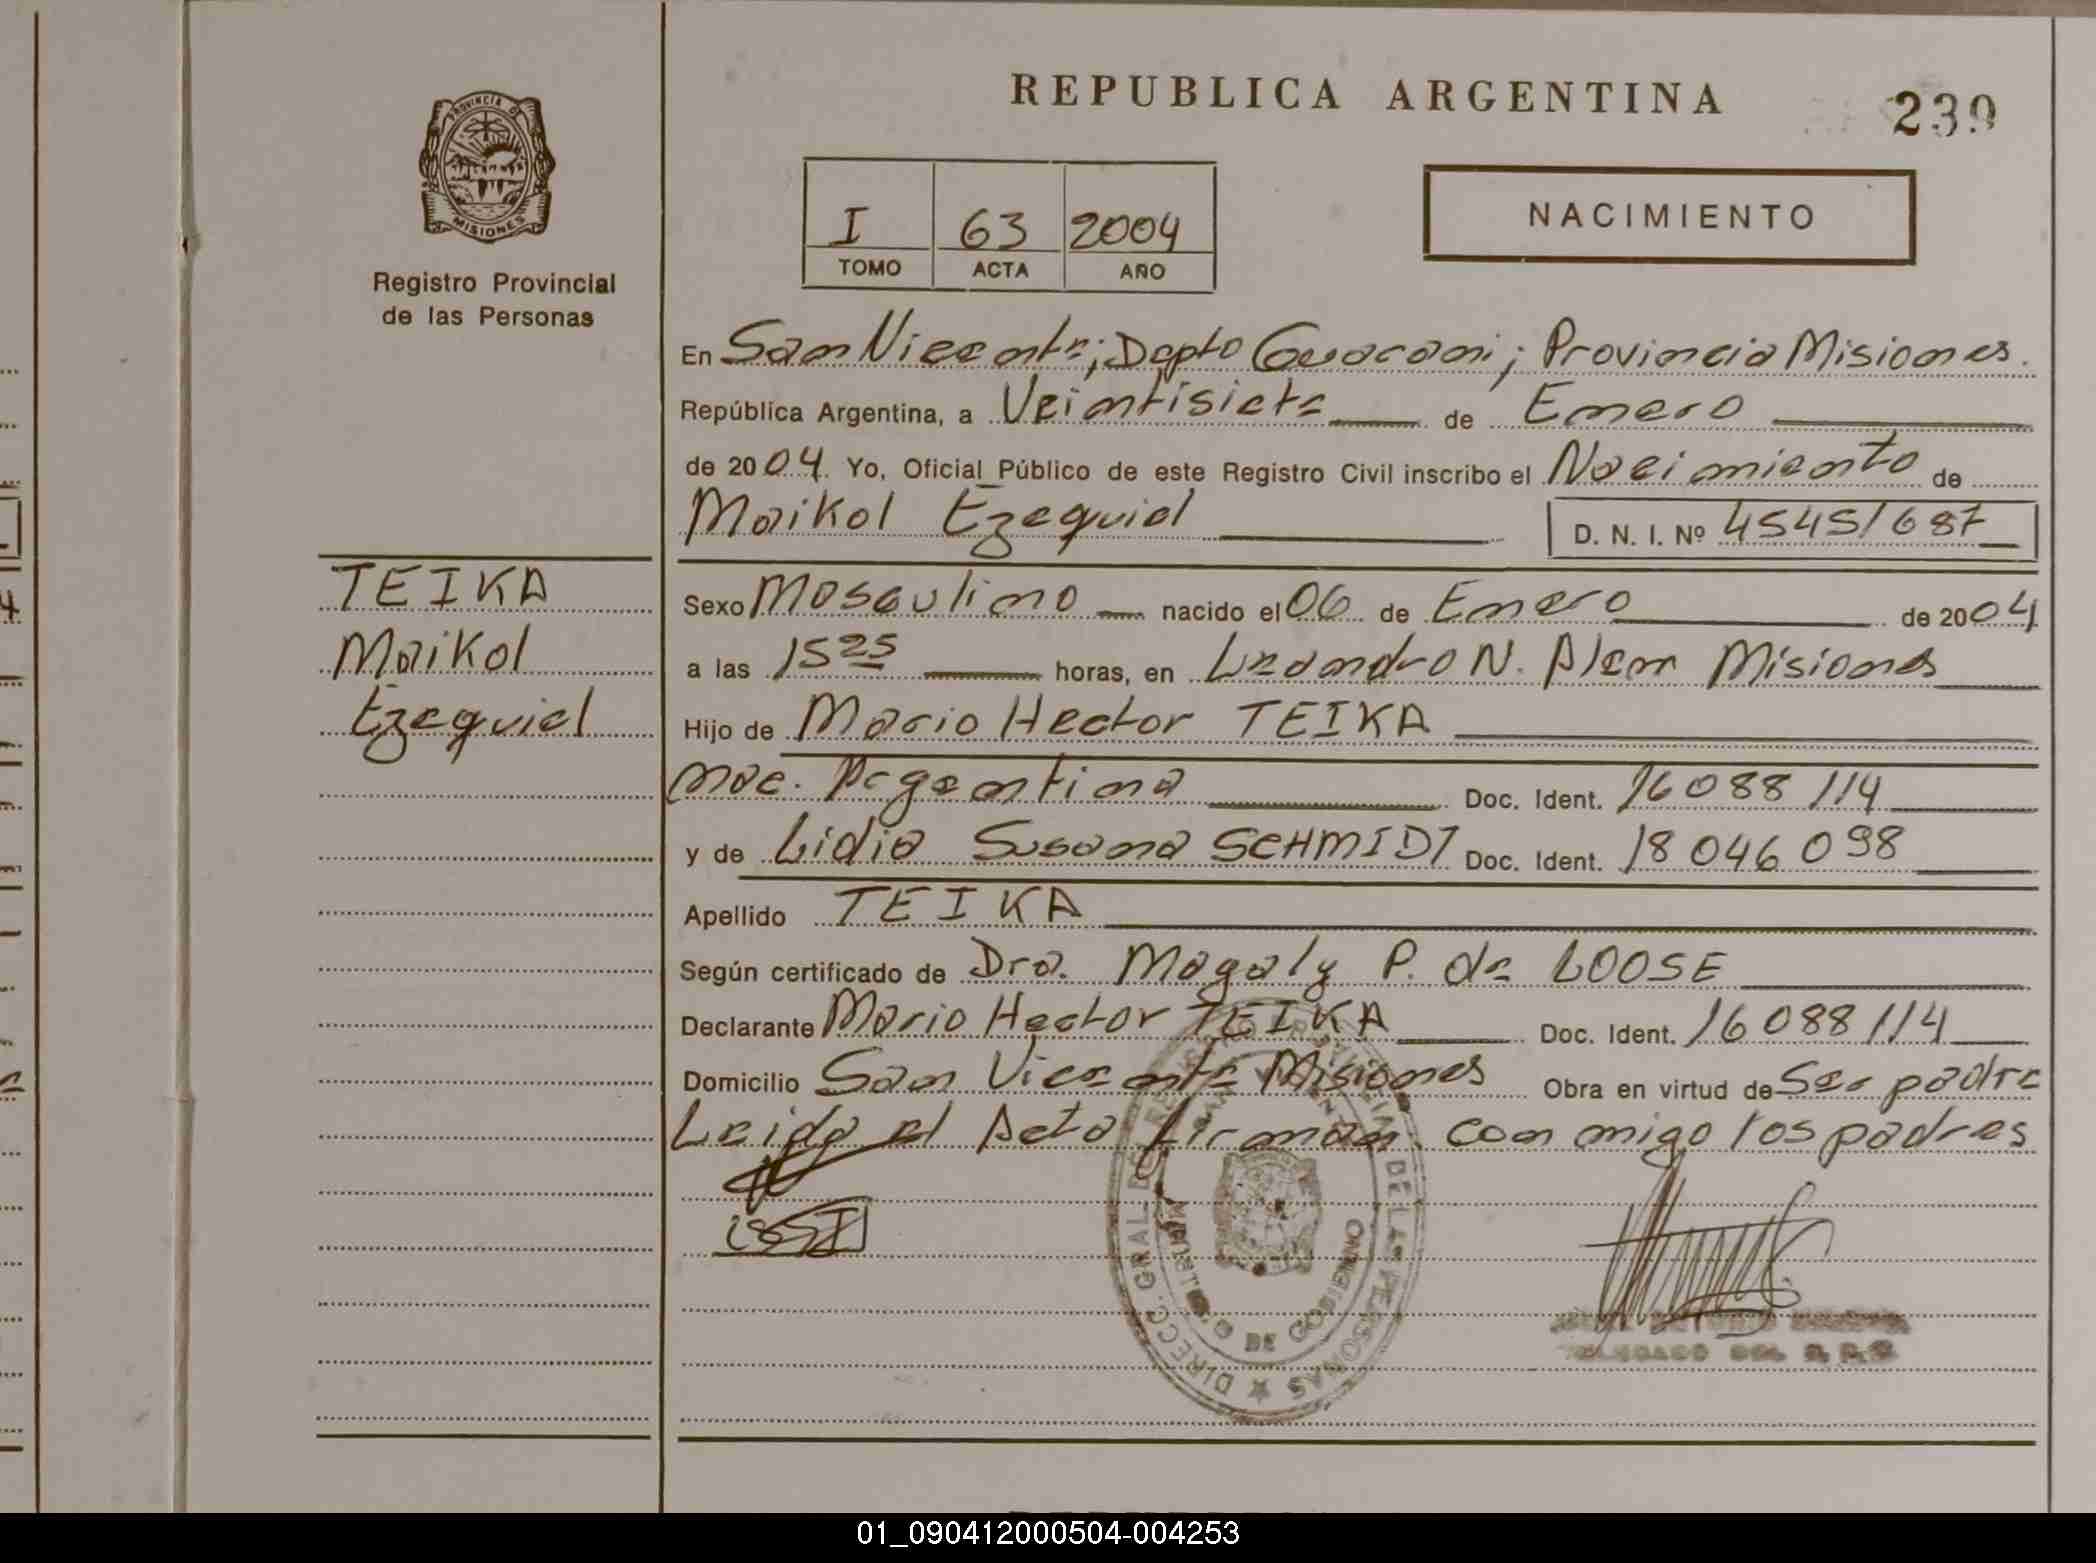 PROVINCIA DE
MISIONES
Registro Provincial
de las Personas
TEIKA
Maikol
Ezequiel
REPUBLICA ARGENTINA
239
I 63 2004
TOMO ACTA AÑO
NACIMIENTO
En San Vicente; Depto Guaraní; Provincia Misiones.
República Argentina, a Veintisiete de Enero
de 2004. Yo, Oficial Público de este Registro Civil inscribo el Nacimiento de
Maikol Ezequiel D. N. I. Nº 45451687
Sexo Masculino nacido el 06 de Enero de 2004
a las 15 25 horas, en Leandro N. Alem Misiones
Hijo de Mario Hector TEIKA
nac. Argentina Doc. Ident. 16088114
y de Lidia Susana SCHMIDT Doc. Ident. 18 046 098
Apellido TEIKA
Según certificado de Dra. Magaly P. de LOOSE
Declarante Mario Hector TEIKA Doc. Ident. 16088114
Domicilio San Vicente Misiones Obra en virtud de Ser padre
Leida el Acta firman con migo los padres
DIRECC. GRAL. DE PERSONAS
MINISTERIO DE GOBIERNO
01_090412000504-004253